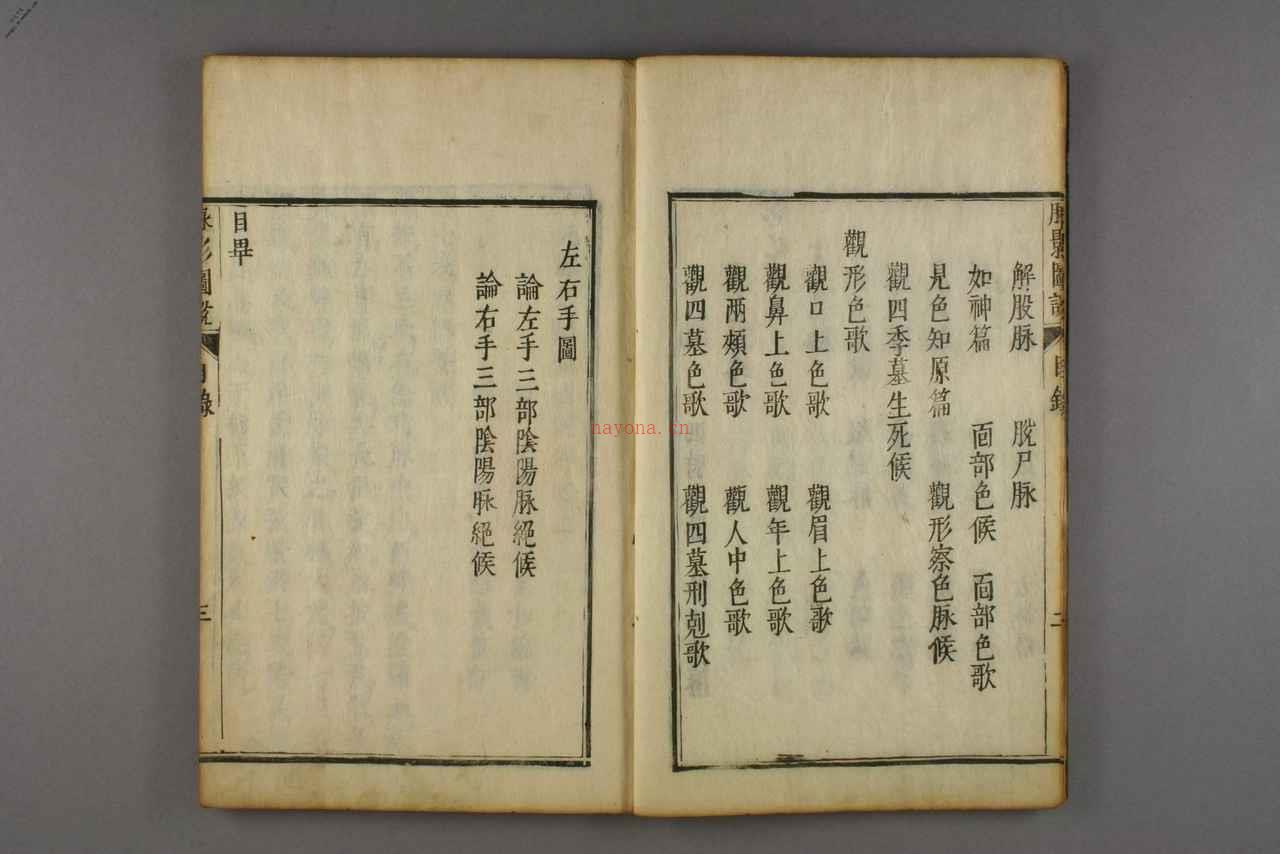 解股脉 脫尸脉
如神篇 面部色候 面部色歌
見色知原篇 觀形察色脉候
觀四季墓生死候
觀形色歌
觀口上色歌 觀眉上色歌
觀鼻上色歌 觀年上色歌
觀兩頰色歌 觀人中色歌
觀四墓色歌 觀四墓刑剋歌
二
左右手圖
論左手三部陰陽脉絕候
論右手三部陰陽脉絕候
目畢
三
nayona.cn